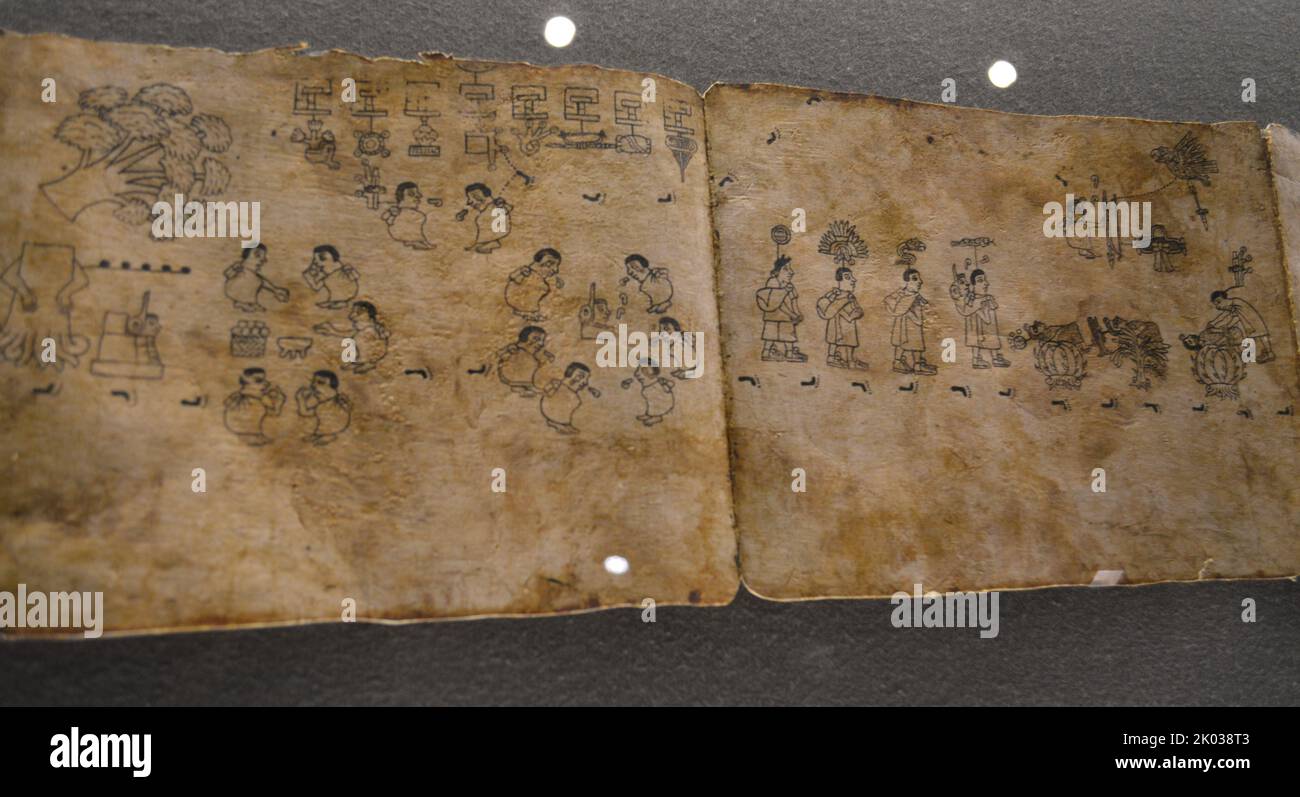 alamy
alamy
a
alamy
a
alamy
alamy
Image ID: 2K038T3
www.alamy.com